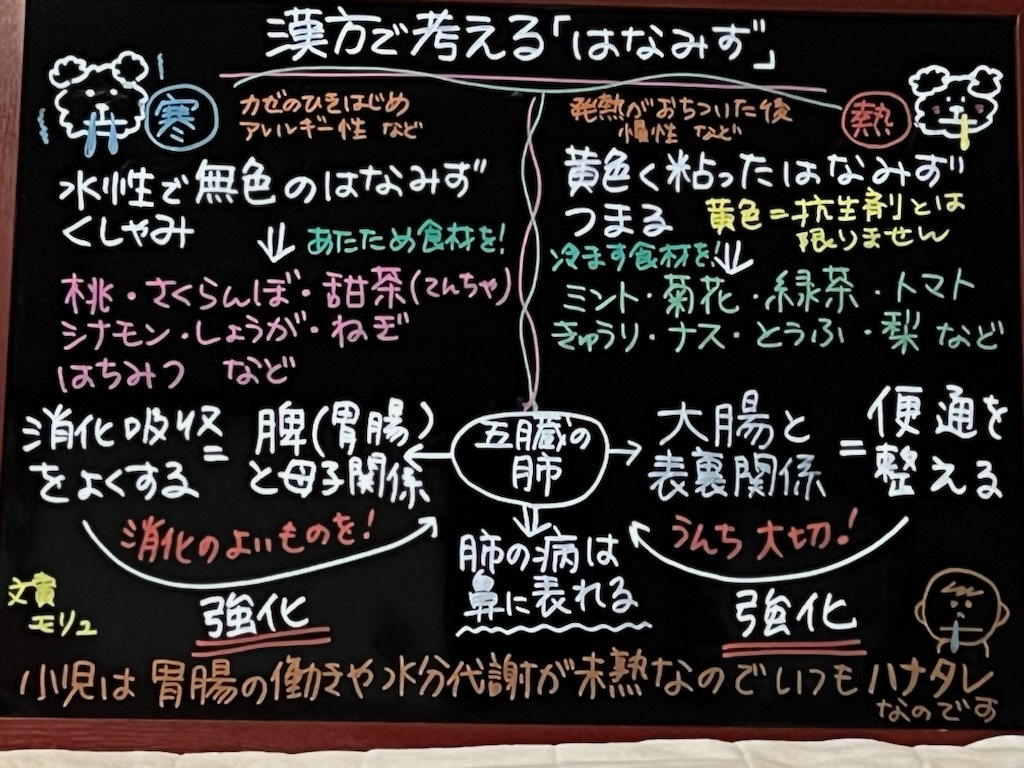 漢方で考える「はなみず」
寒
カゼのひきはじめ
アレルギー性 など
水性で無色のはなみず
くしゃみ
あたため食材を!
桃・さくらんぼ・甜茶(てんちゃ)
シナモン・しょうが・ねぎ
はちみつ など
熱
発熱がおちついた後
慢性 など
黄色く粘ったはなみず
つまる
黄色=抗生剤とは
限りません
冷ます食材を!
ミント・菊花・緑茶・トマト
きゅうり・ナス・とうふ・梨 など
五臓の
肺
脾(胃腸)
と母子関係
=
消化吸収
をよくする
消化のよいものを!
強化
大腸と
表裏関係
=
便通を
整える
うんち大切!
強化
肺の病は
鼻に表れる
文責
モリュ
小児は胃腸の働きや水分代謝が未熟なのでいつもハナタレ
なのです